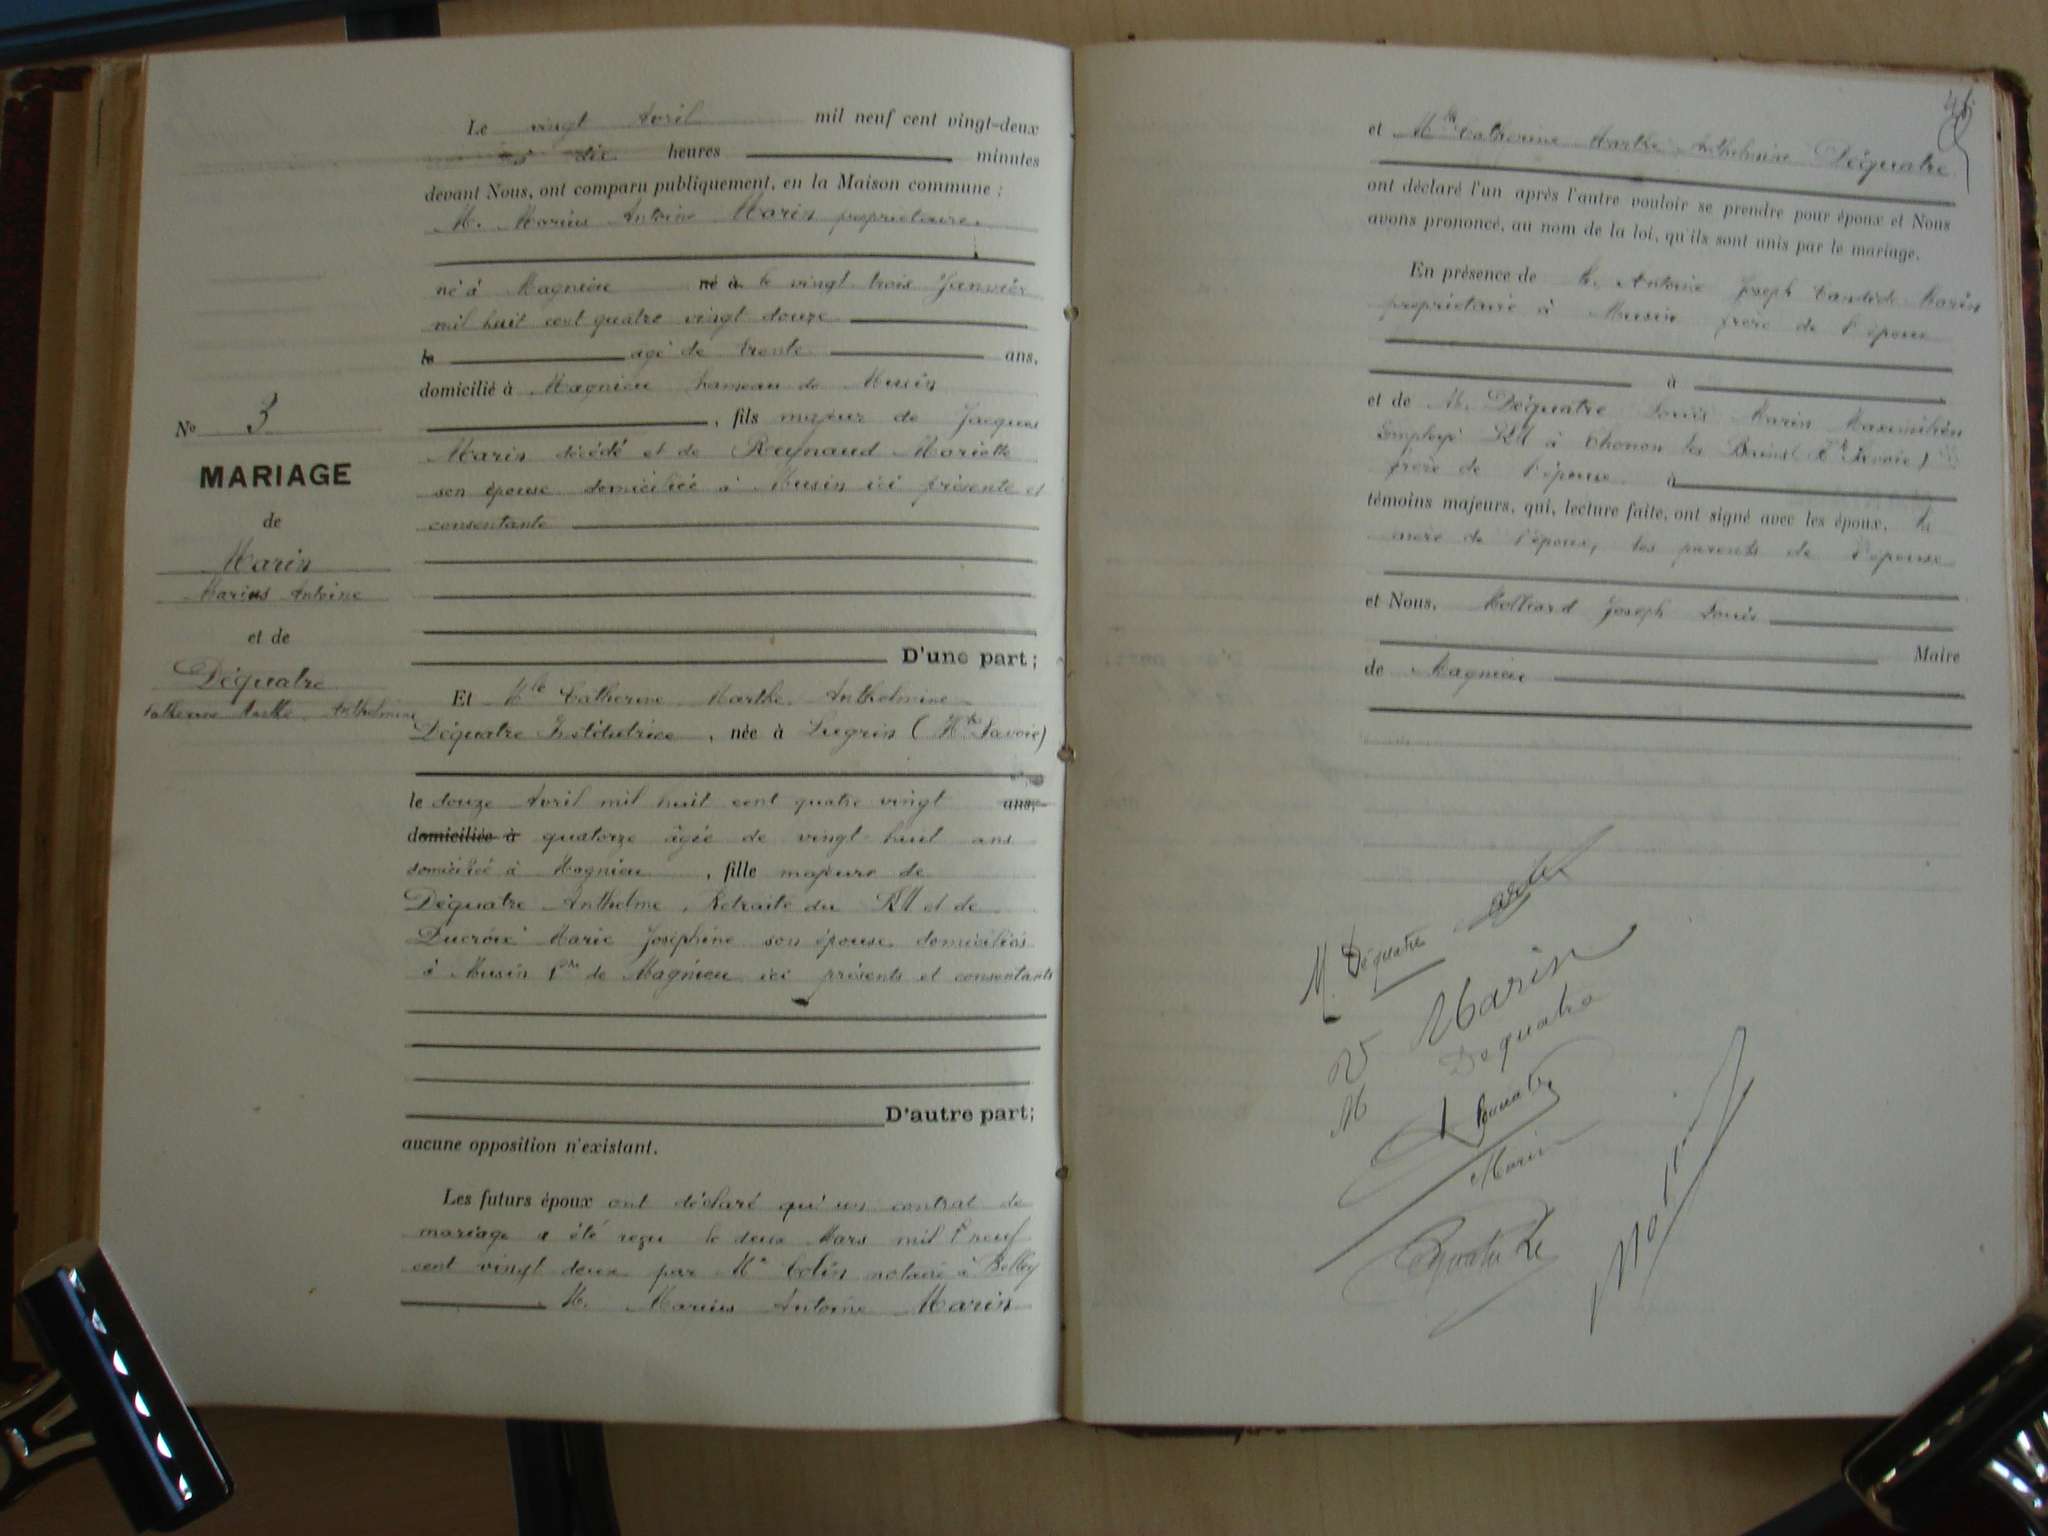 Le vingt Avril mil neuf cent vingt-deux
à dix heures minutes
devant Nous, ont comparu publiquement, en la Maison commune :
M. Marius Antoine Marin propriétaire.
né à Magnieu né à le vingt trois Janvier
mil huit cent quatre vingt douze
le âgé de trente ans,
domicilié à Magnieu hameau de Musin
, fils majeur de Jacques
Marin décédé et de Reynaud Mariette
son épouse domiciliée à Musin ici présente et
consentante
D'une part ;
No 3
MARIAGE
de
Marin
Marius Antoine
et de
Déquatre
Catherine Marthe Anthelmine
Et Mlle Catherine Marthe Anthelmine
Déquatre Institutrice, née à Lugrin (Hte Savoie)
le douze Avril mil huit cent quatre vingt ans,
domiciliée à quatorze âgée de vingt-huit ans
domiciliée à Magnieu, fille majeure de
Déquatre Anthelme, Retraité du et de
Ducroix Marie Joséphine son épouse domiciliés
à Musin Cne de Magnieu ici présents et consentants
D'autre part ;
aucune opposition n'existant.
Les futurs époux ont déclaré qu'un contrat de
mariage a été reçu le deux Mars mil neuf
cent vingt deux par Me Colin notaire à Belley
M. Marius Antoine Marin
46
et Mlle Catherine Marthe Anthelmine Déquatre
ont déclaré l'un après l'autre vouloir se prendre pour époux et Nous
avons prononcé, au nom de la loi, qu'ils sont unis par le mariage.
En présence de M. Antoine Joseph Candide Marin
propriétaire à Musin frère de l'époux
à
et de M. Déquatre Louis Marin Maximilien
Employé à Thonon les Bains (Hte Savoie)
frère de l'épouse à
témoins majeurs, qui, lecture faite, ont signé avec les époux, la
mère de l'époux, les parents de l'épouse
et Nous, Molliard Joseph Louis
Maire
de Magnieu
M. Déquatre
Marin
Dequatre
Marin